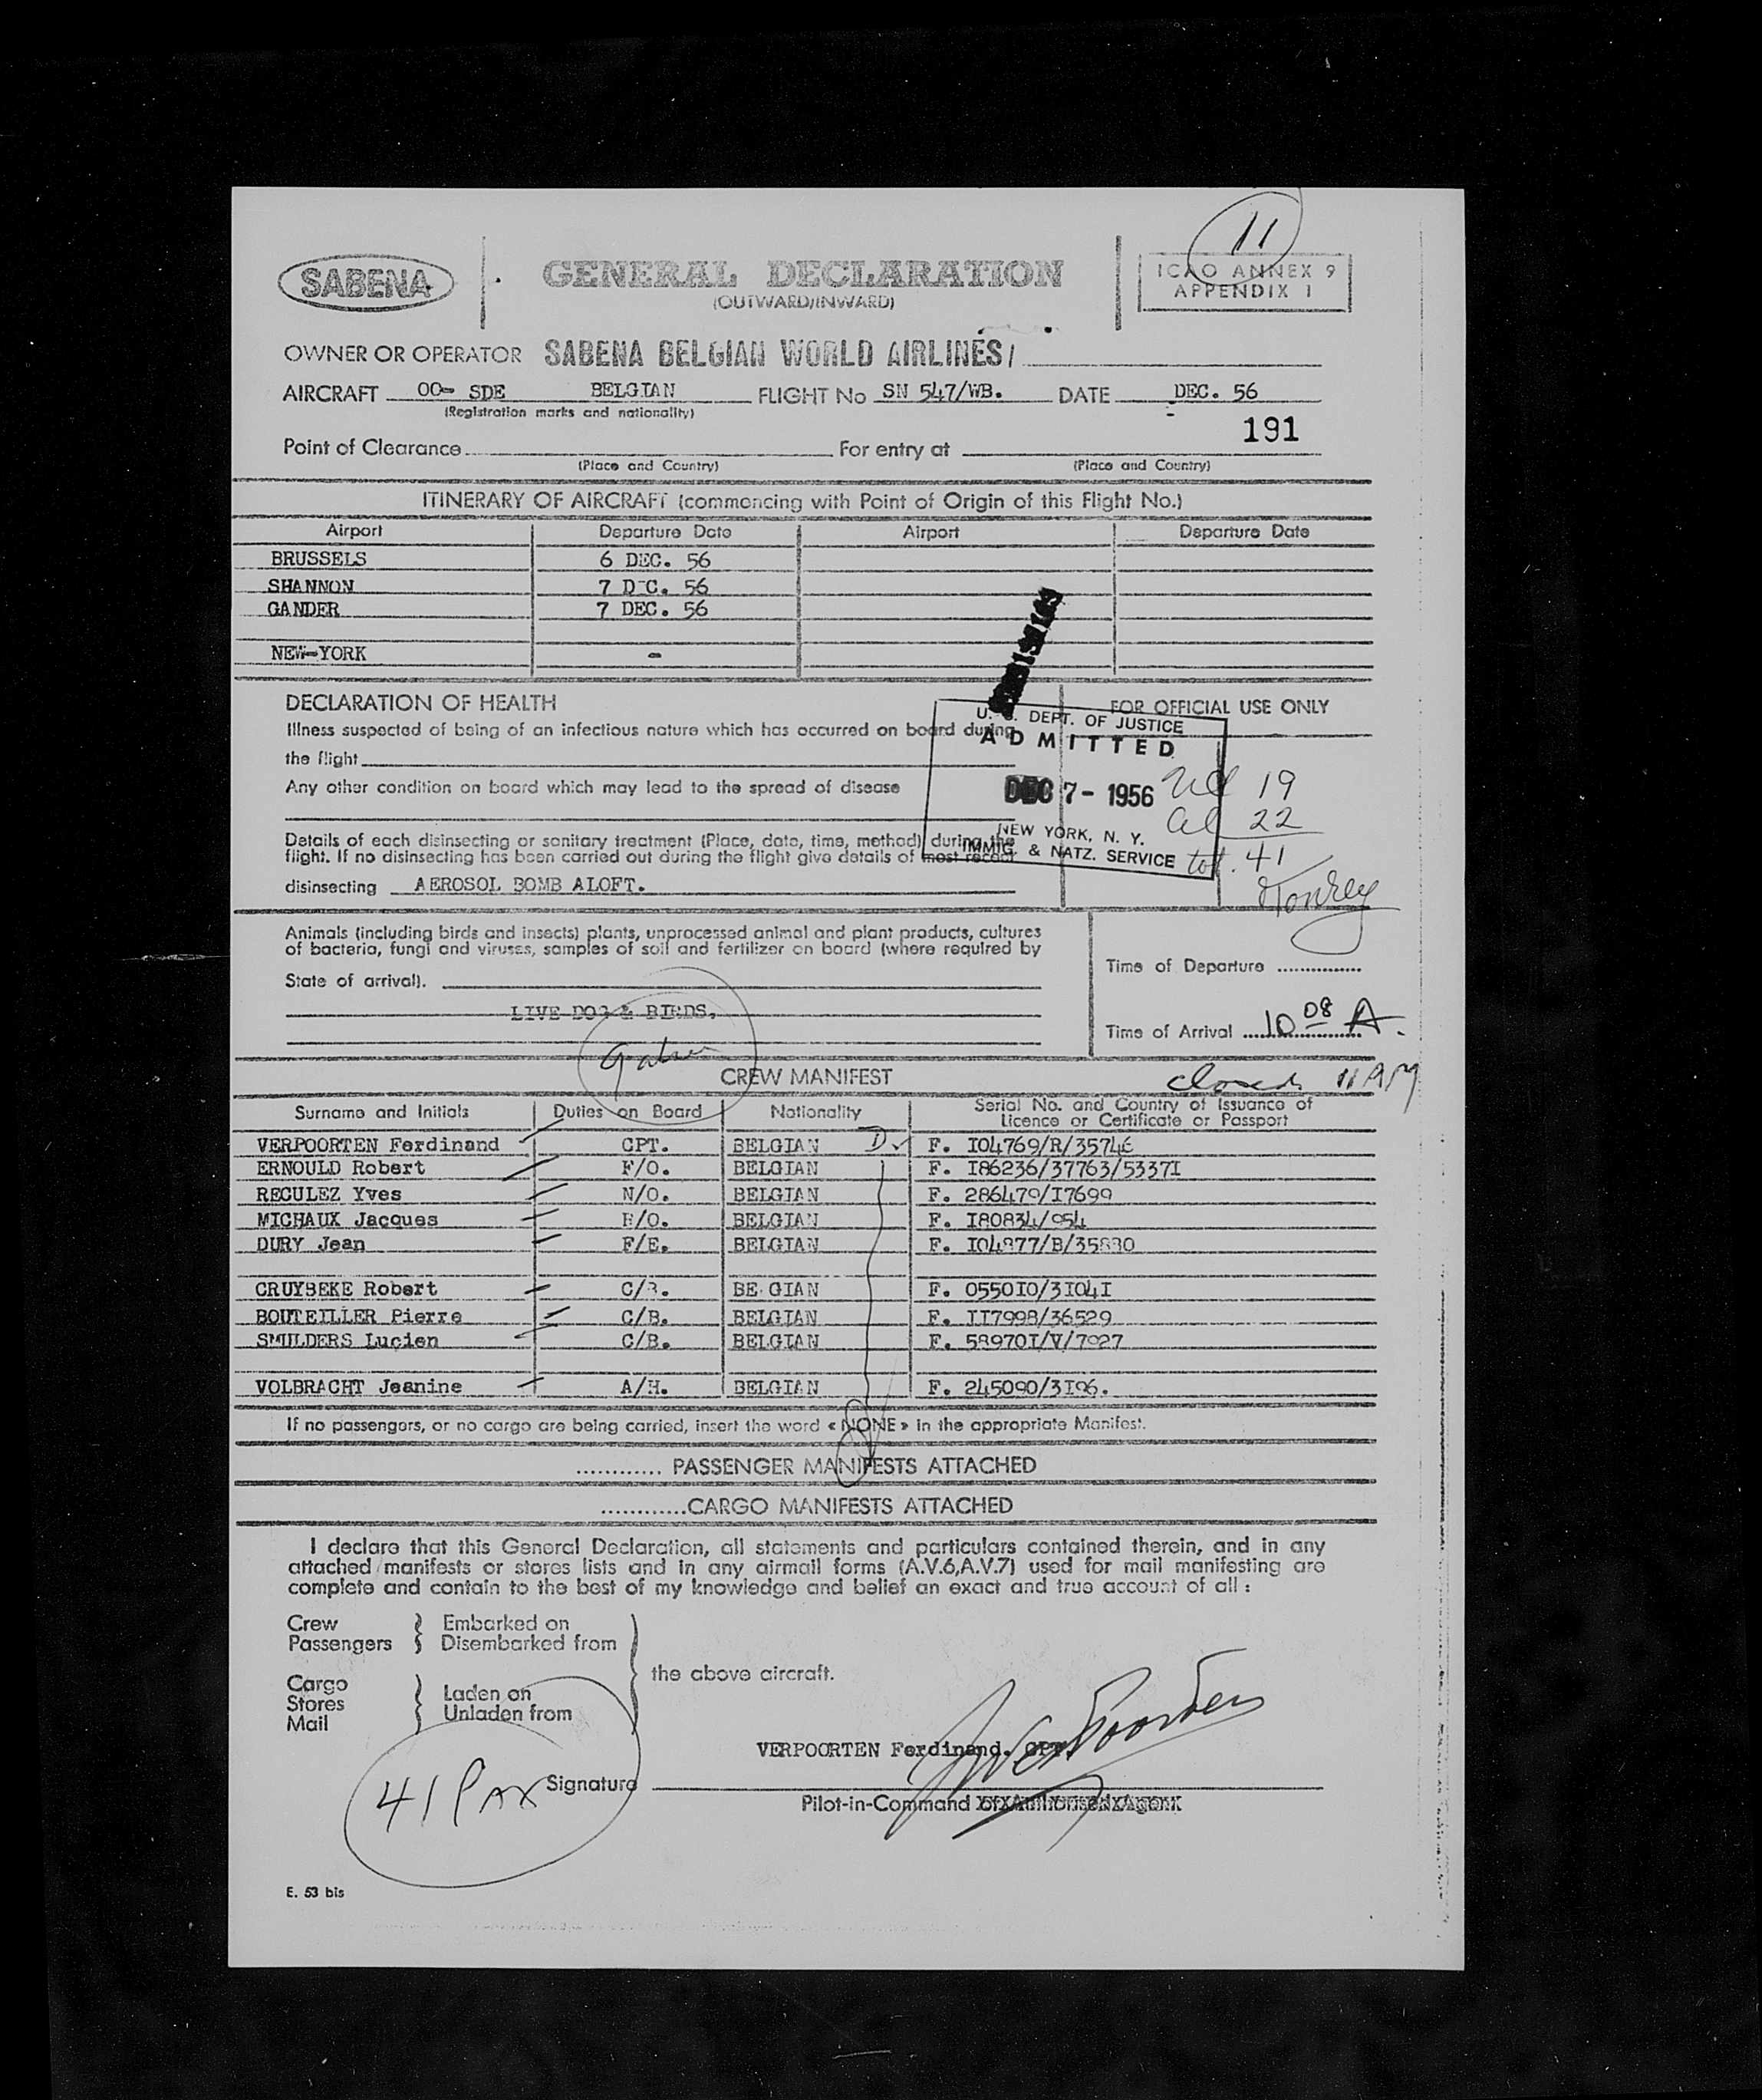 11
SABENA
GENERAL DECLARATION
(OUTWARD/INWARD)
ICAO ANNEX 9
APPENDIX 1
OWNER OR OPERATOR SABENA BELGIAN WORLD AIRLINES/
AIRCRAFT OO- SDE BELGIAN FLIGHT No SN 547/WB. DATE DEC. 56
(Registration marks and nationality)
191
Point of Clearance For entry at
(Place and Country) (Place and Country)
ITINERARY OF AIRCRAFT (commencing with Point of Origin of this Flight No.)
Airport Departure Date Airport Departure Date
BRUSSELS 6 DEC. 56
SHANNON 7 D-C. 56
GANDER 7 DEC. 56
NEW-YORK -
DECLARATION OF HEALTH
FOR OFFICIAL USE ONLY
Illness suspected of being of an infectious nature which has occurred on board during
the flight
Any other condition on board which may lead to the spread of disease
Details of each disinsecting or sanitary treatment (Place, date, time, method) during the
flight. If no disinsecting has been carried out during the flight give details of most recent
disinsecting AEROSOL BOMB ALOFT.
U. S. DEPT. OF JUSTICE
ADMITTED
DEC 7- 1956
NEW YORK, N. Y.
IMMIG. & NATZ. SERVICE
19
22
tot. 41
Animals (including birds and insects) plants, unprocessed animal and plant products, cultures
of bacteria, fungi and viruses, samples of soil and fertilizer on board (where required by
State of arrival).
LIVE DOG & BIRDS.
Time of Departure
Time of Arrival 10 08 A.
closed 11 AM
CREW MANIFEST
Surname and Initials Duties on Board Nationality Serial No. and Country of Issuance of
Licence or Certificate or Passport
VERPOORTEN Ferdinand CPT. BELGIAN F. I04769/R/35746
ERNOULD Robert F/O. BELGIAN F. I86236/37763/5337I
RECULEZ Yves N/O. BELGIAN F. 286479/I7699
MICHAUX Jacques R/O. BELGIAN F. I80834/954
DURY Jean F/E. BELGIAN F. I04977/B/35890
CRUYBEKE Robert C/B. BE GIAN F. 0550I0/3I04I
BOUTEILLER Pierre C/B. BELGIAN F. II7998/36529
SMULDERS Lucien C/B. BELGIAN F. 58970I/V/7927
VOLBRACHT Jeanine A/H. BELGIAN F. 245090/3I96.
If no passengers, or no cargo are being carried, insert the word « NONE » in the appropriate Manifest.
............ PASSENGER MANIFESTS ATTACHED
............CARGO MANIFESTS ATTACHED
I declare that this General Declaration, all statements and particulars contained therein, and in any
attached manifests or stores lists and in any airmail forms (A.V.6,A.V.7) used for mail manifesting are
complete and contain to the best of my knowledge and belief an exact and true account of all :
Crew Embarked on
Passengers Disembarked from
the above aircraft.
Cargo
Stores Laden on
Mail Unladen from
VERPOORTEN Ferdinand. CPT.
41 PAX
Signature
Pilot-in-Command or Authorised Agent
E. 53 bis